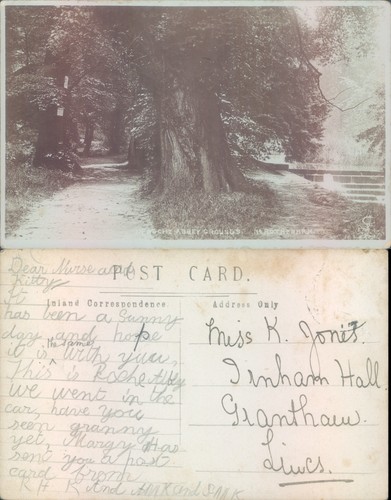 ROCHE ABBEY GROUNDS. NR ROTHERHAM
POST CARD.
Inland Correspondence Address Only
Dear Nurse and
Kitty
It
has been a Sunny
day and hope
it is the same with you,
This is Roche Abby
We went in the
car, have you
seen granny
yet, Margy Has
sent you a post
card from
R H K and
Miss K. Jones.
Irnham Hall.
Grantham.
Lincs.